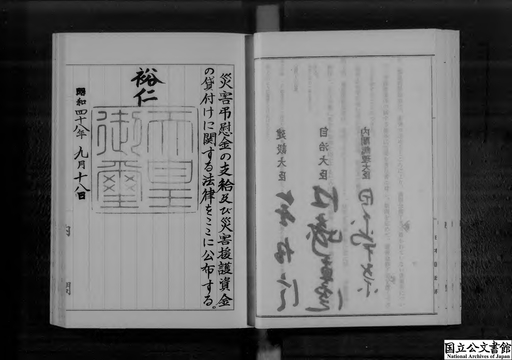 災害弔慰金の支給及び災害援護資金
の貸付けに関する法律をここに公布する。
裕仁
天皇
御璽
昭和四十八年 九月十八日
内閣総理大臣
自治大臣
建設大臣
国立公文書館
National Archives of Japan